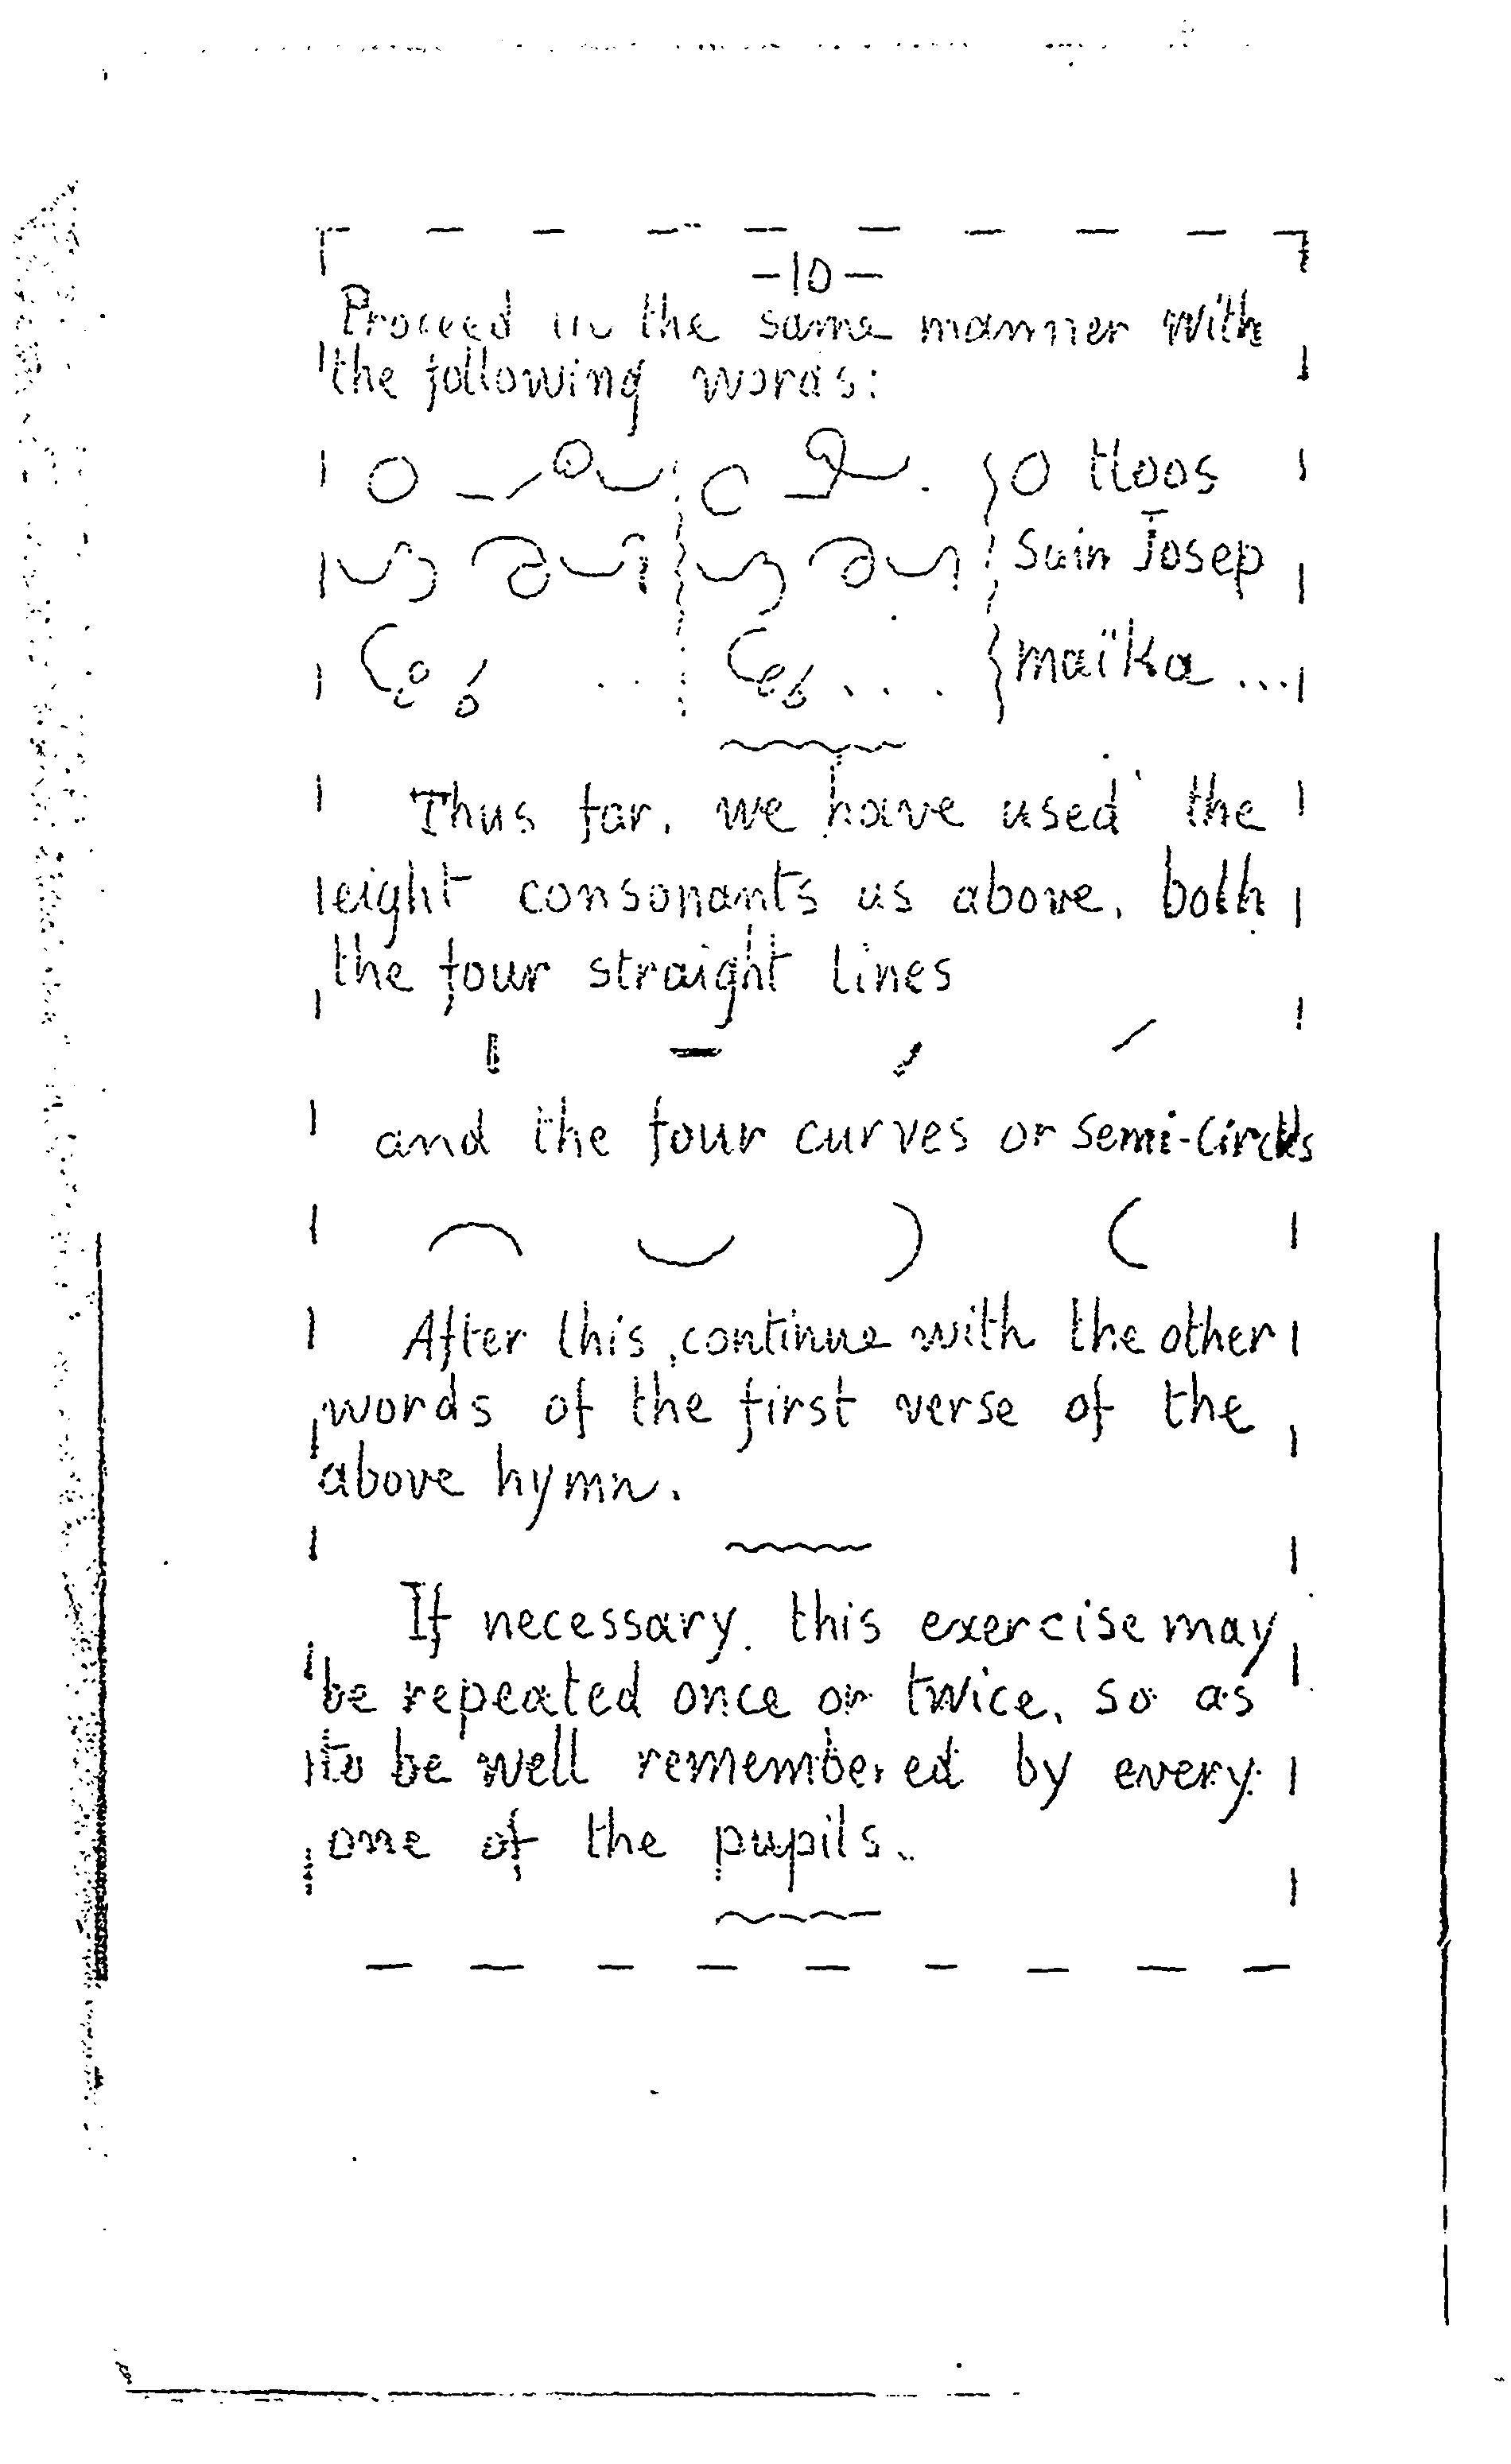 -10-
Proceed in the same manner with
the following words:
O Tloos
Sain Josep
maïka ...
Thus far, we have used the
eight consonants as above, both
the four straight lines
and the four curves or semi-circles
After this, continue with the other
words of the first verse of the
above hymn.
If necessary, this exercise may
be repeated once or twice, so as
to be well remembered by every
one of the pupils.